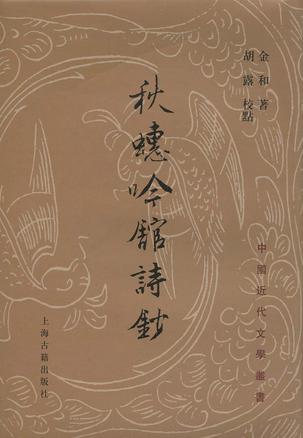 金和 著
胡露 校點
秋蟪吟館詩鈔
中國近代文學叢書
上海古籍出版社